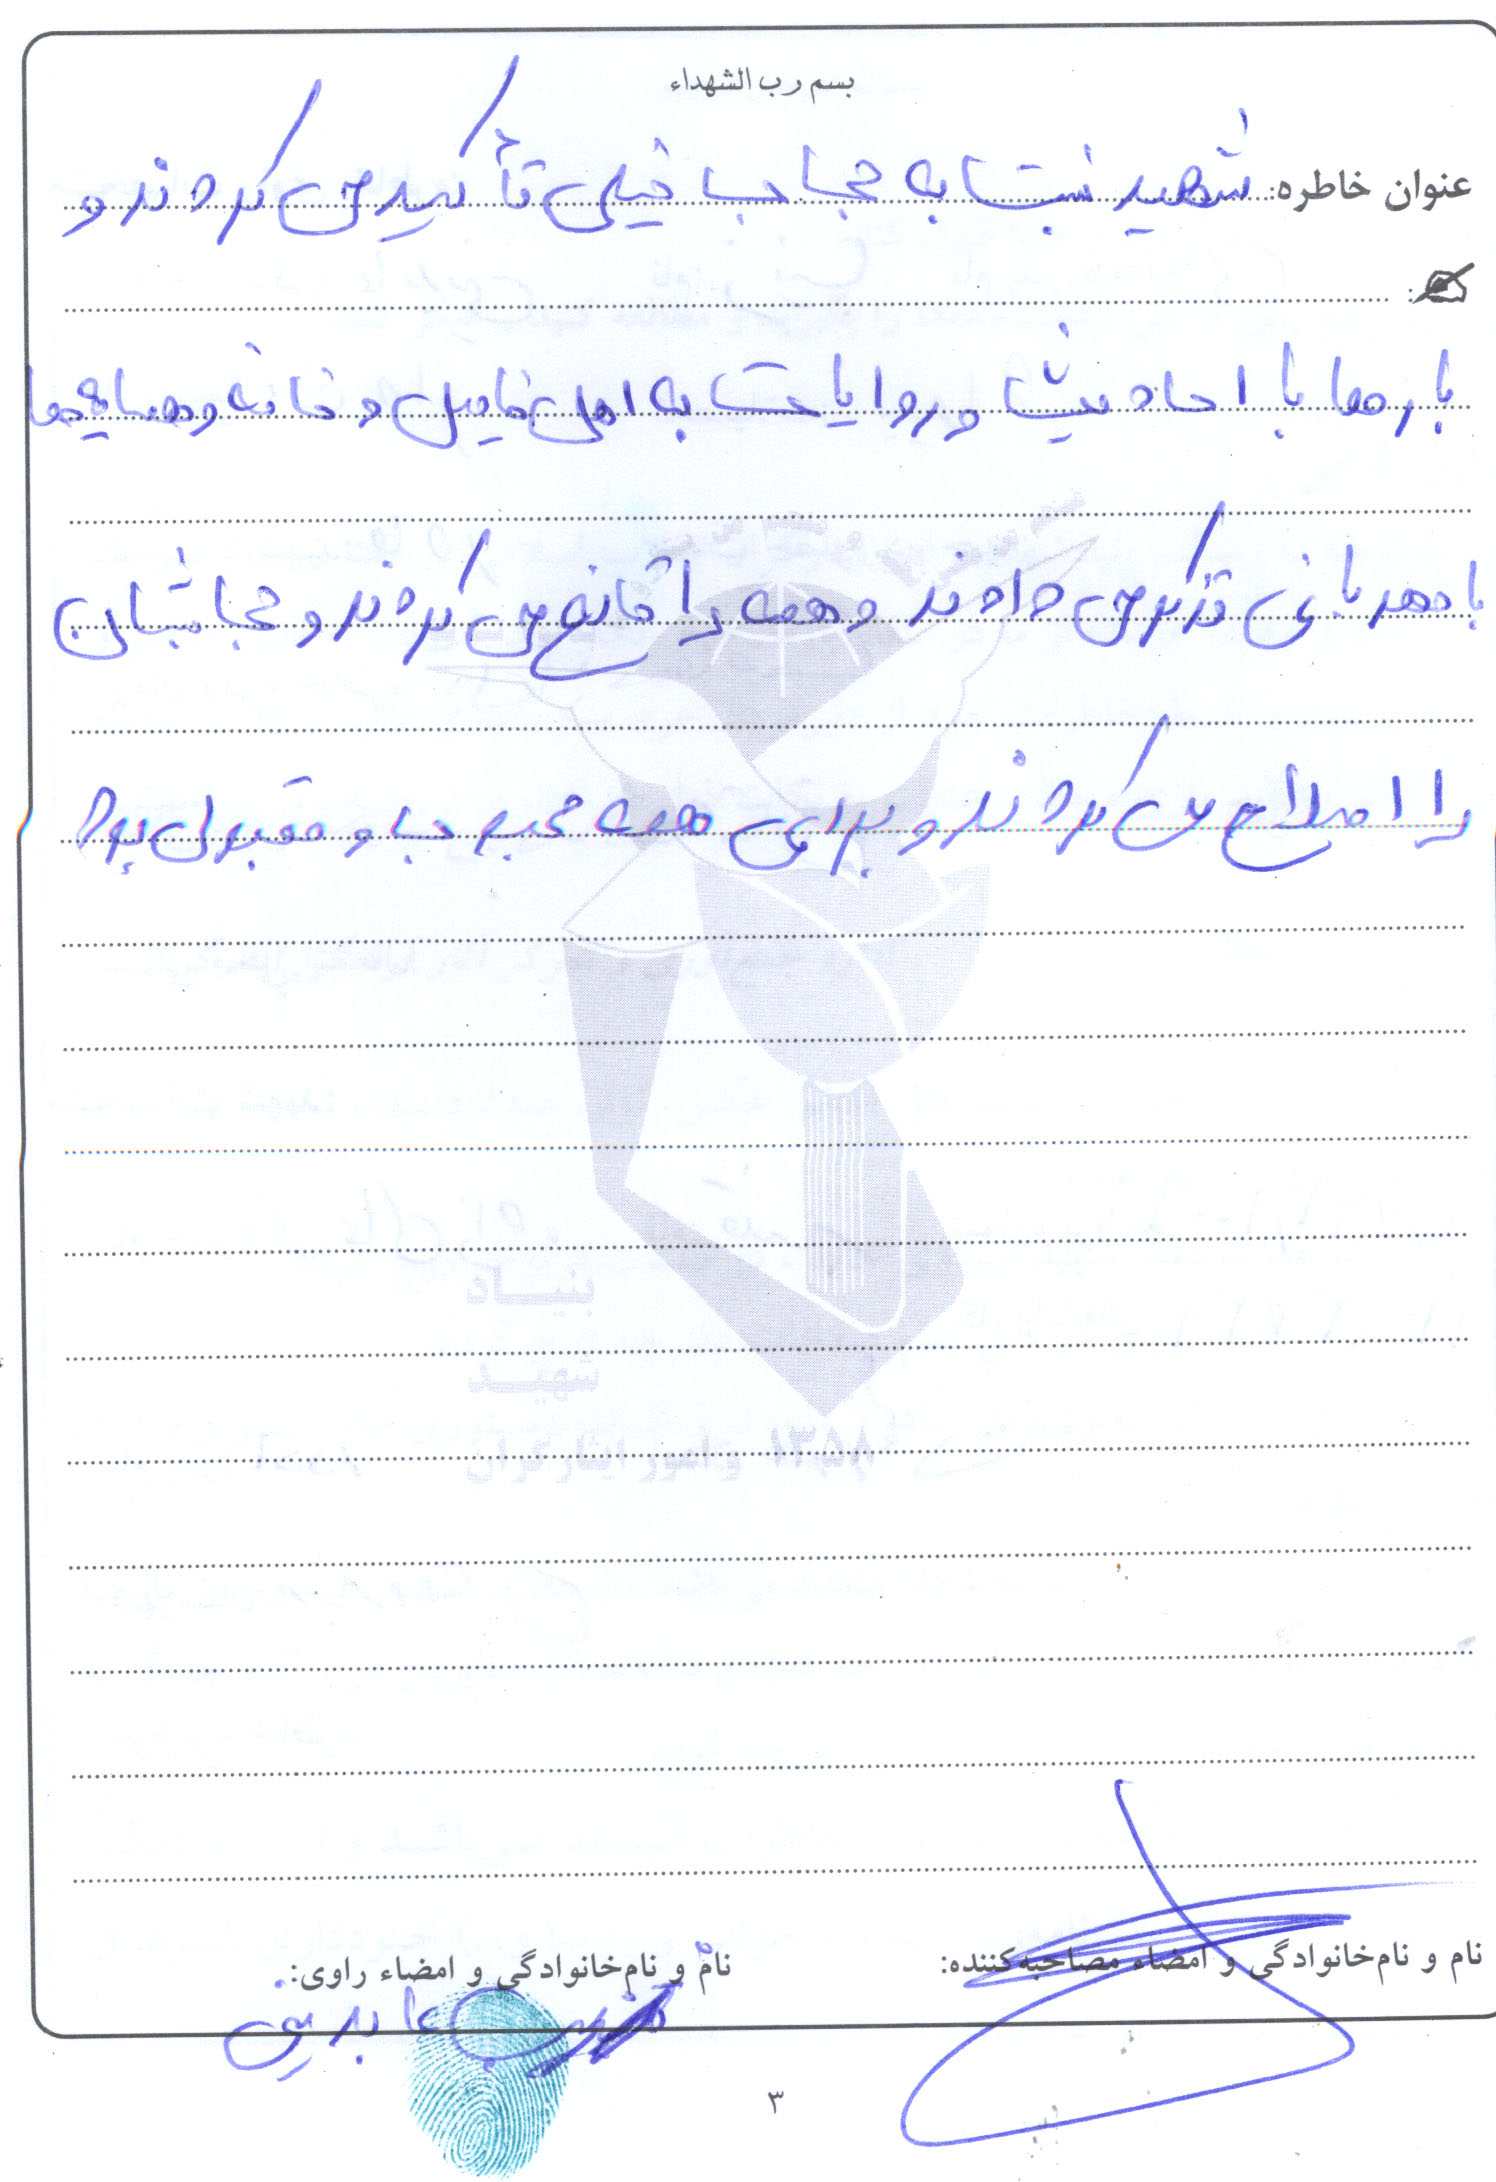 بسم رب الشهداء
عنوان خاطره: شهید نسبت به حجاب خیلی تأکید می کردند و
بارها با احادیث و روایات به اهل فامیل و خانه و همسایه ها
با مهربانی تذکر می دادند و همه را قانع می کردند و حجابشان
را اصلاح می کردند و برای همه محبوب و مقبول بود
بنیاد
شهید
و امور ایثارگران ۱۳۵۸
نام و نام‌خانوادگی و امضاء مصاحبه‌کننده:
نام و نام‌خانوادگی و امضاء راوی:
عابدینی
۳